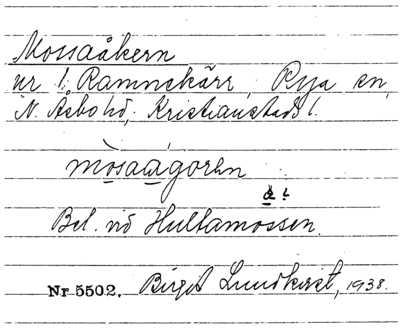 Mossaåkern
nr 1 Ramnekärr, Rya sn,
N. Åsbo hd, Kristianstads l.
Bel. vid Hultamossen.
Nr 5502. Birgit Lundkvist, 1938.